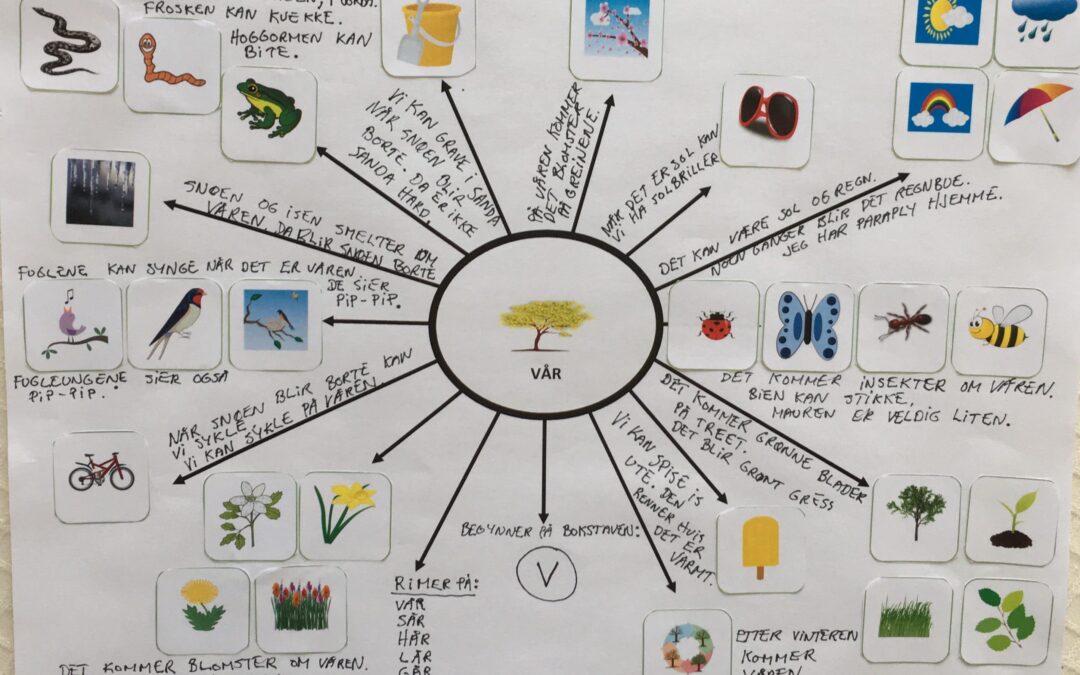 FROSKEN KAN KVEKKE.
HOGGORMEN KAN
BITE.
VI KAN GRAVE I SANDA
NÅR SNØEN BLIR
BORTE. DA ER IKKE
SANDA HARD.
PÅ VÅREN KOMMER
DET BLOMSTER
PÅ GREINENE.
NÅR DET ER SOL KAN
VI HA SOLBRILLER
DET KAN VÆRE SOL OG REGN.
NOEN GANGER BLIR DET REGNBUE.
JEG HAR PARAPLY HJEMME.
SNØEN OG ISEN SMELTER OM
VÅREN. DA BLIR SNØEN BORTE
FUGLENE KAN SYNGE NÅR DET ER VÅREN.
DE SIER
PIP-PIP.
FUGLEUNGENE SIER OGSÅ
PIP-PIP.
VÅR
DET KOMMER INSEKTER OM VÅREN.
BIEN KAN STIKKE.
MAUREN ER VELDIG LITEN.
NÅR SNØEN BLIR BORTE KAN
VI SYKLE.
VI KAN SYKLE PÅ VÅREN.
DET KOMMER GRØNNE BLADER
PÅ TREET.
DET BLIR GRØNT GRESS
VI KAN SPISE IS
UTE. DEN
RENNER HVIS
DET ER
VARMT.
BEGYNNER PÅ BOKSTAVEN:
V
RIMER PÅ:
VÅR
SÅR
HÅR
LÅR
GÅR
ETTER VINTEREN
KOMMER
VÅREN
DET KOMMER BLOMSTER OM VÅREN.